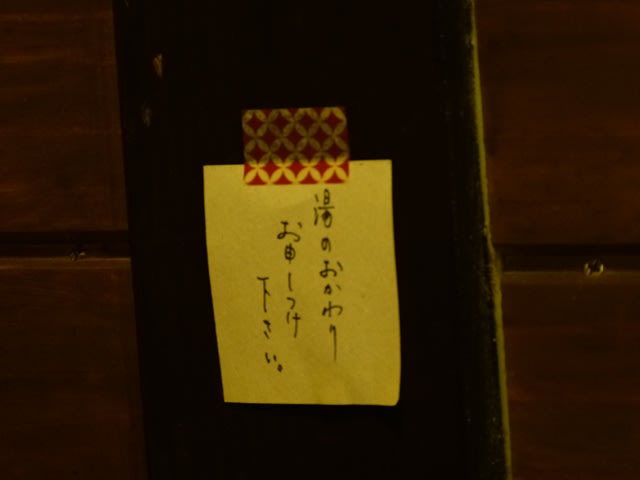 湯のおかわり
お申しつけ
下さい。